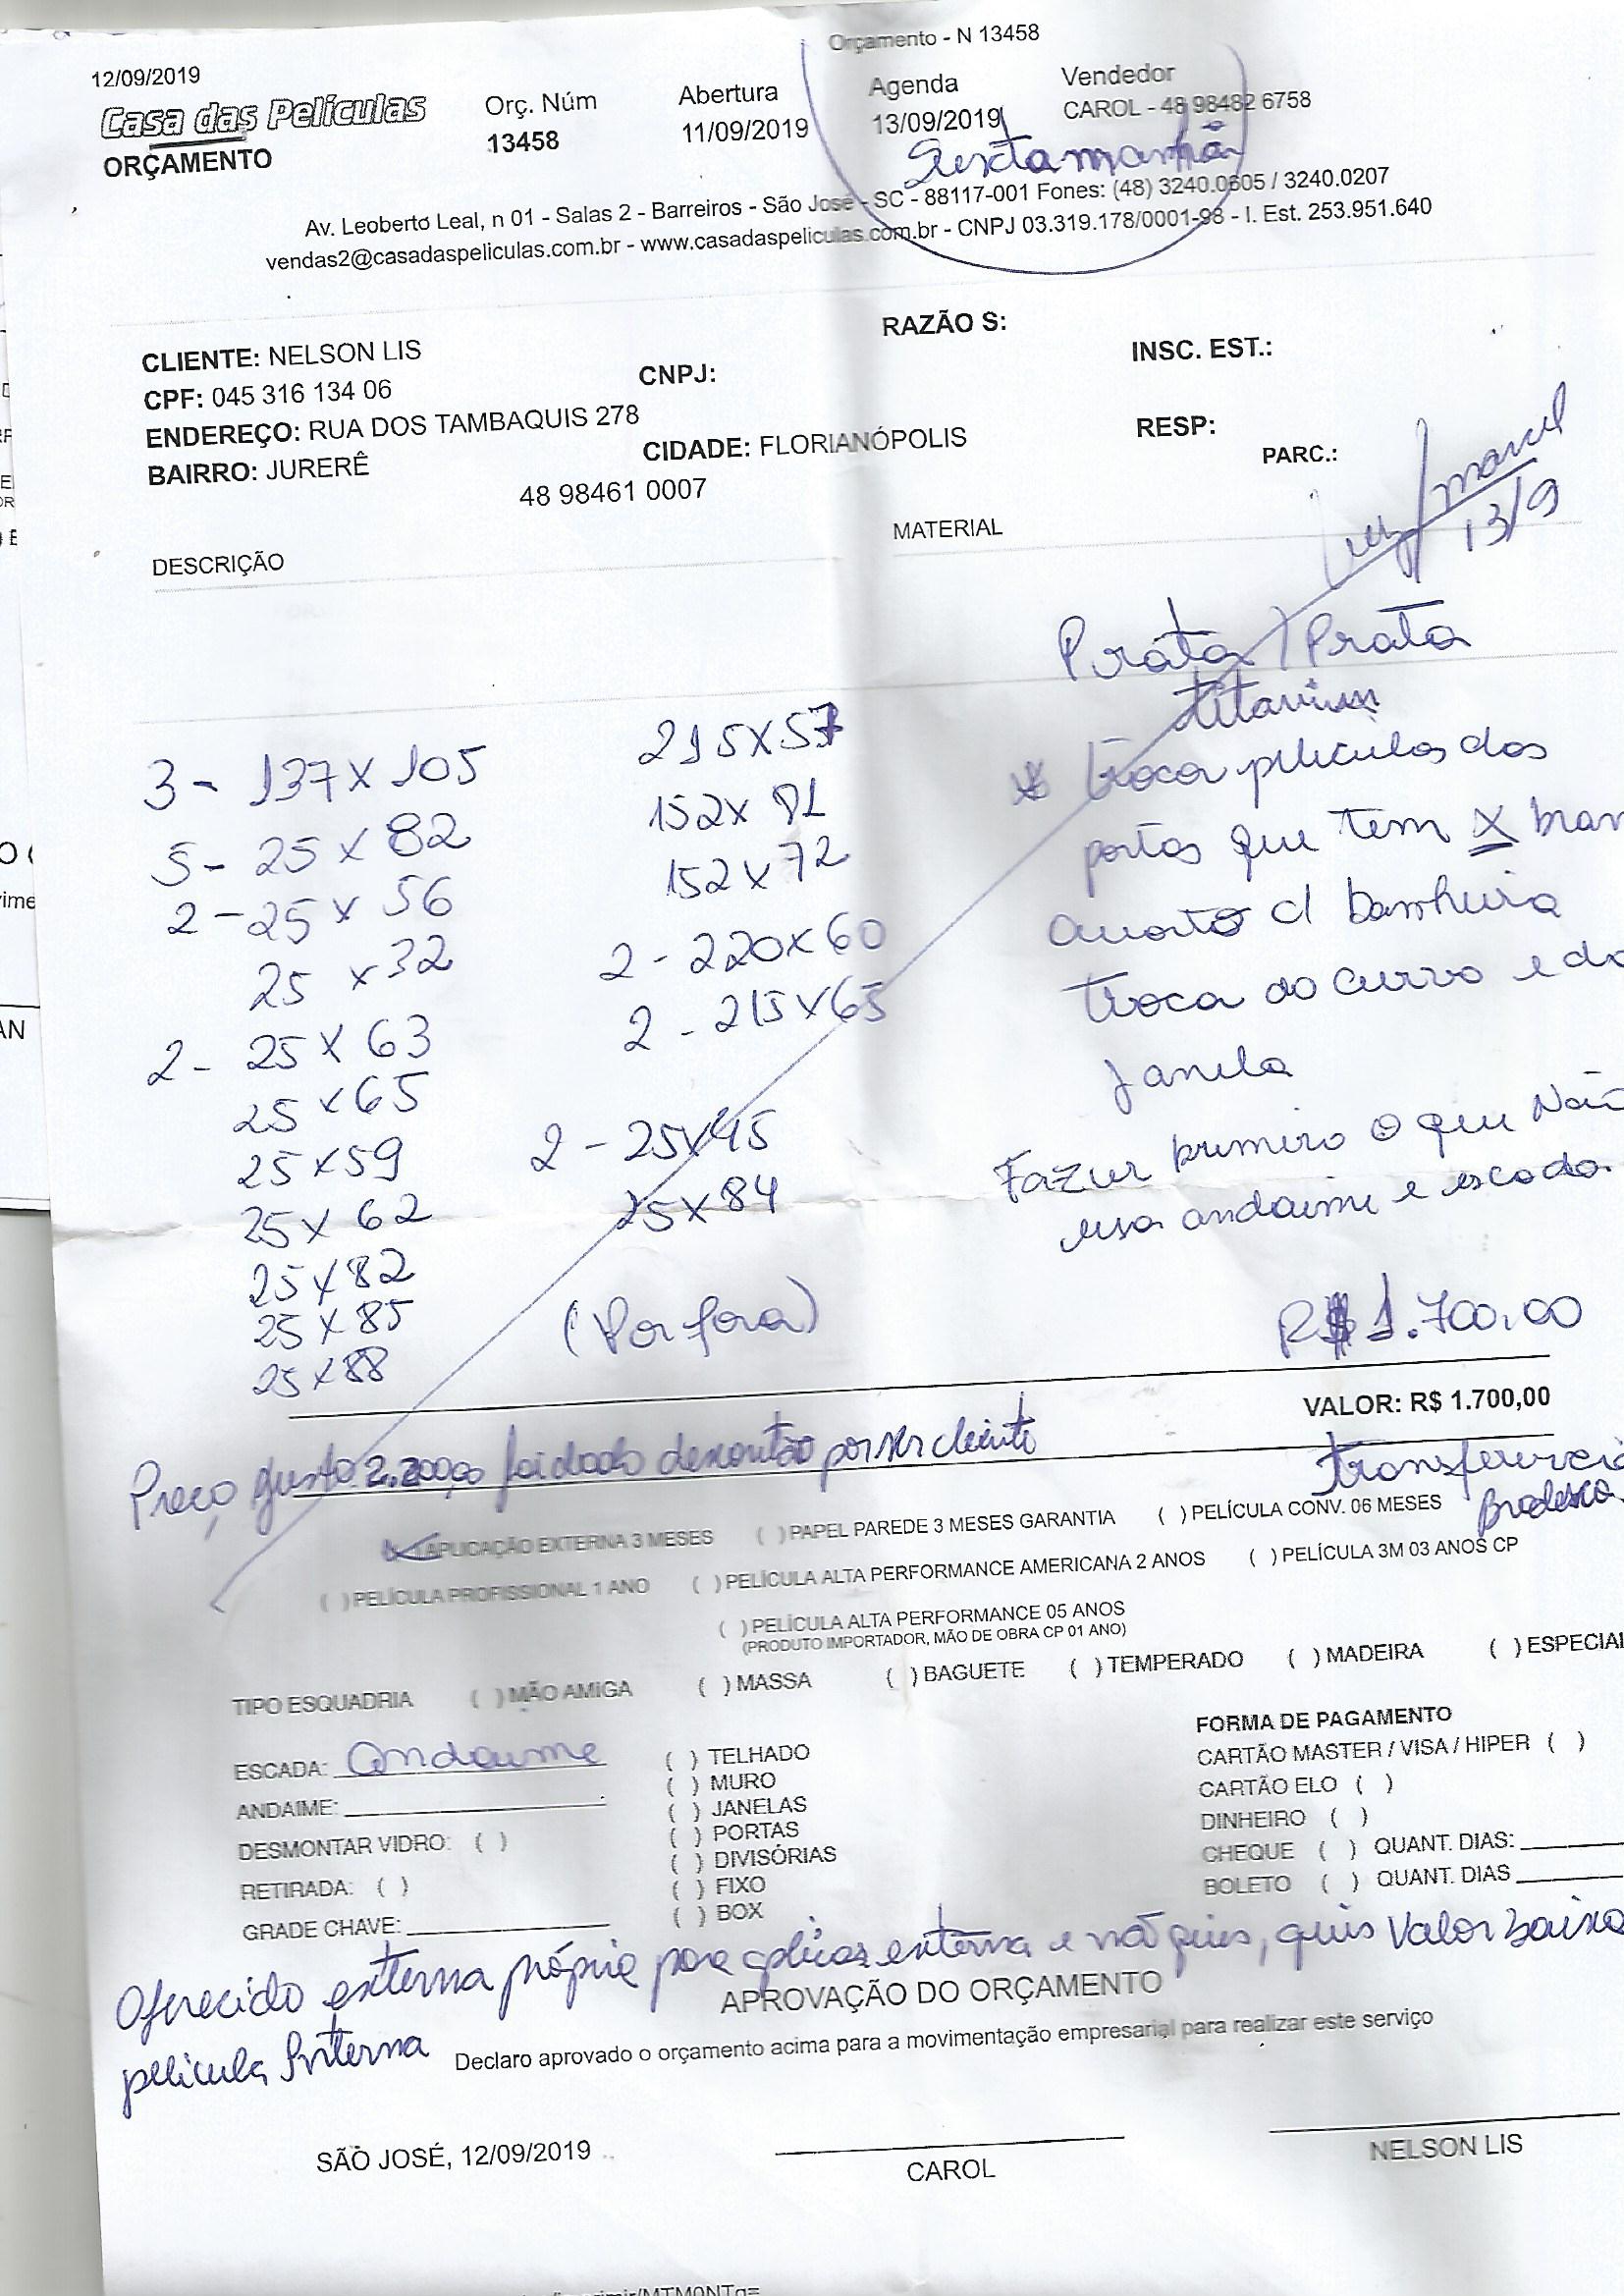 Orçamento - N 13458
12/09/2019
Casa das Películas
ORÇAMENTO
Orç. Núm
13458
Abertura
11/09/2019
Agenda
13/09/2019
Vendedor
CAROL - 48 98482 6758
Sexta manhã
Av. Leoberto Leal, n 01 - Salas 2 - Barreiros - São José - SC - 88117-001 Fones: (48) 3240.0605 / 3240.0207
vendas2@casadaspeliculas.com.br - www.casadaspeliculas.com.br - CNPJ 03.319.178/0001-98 - I. Est. 253.951.640
RAZÃO S:
CLIENTE: NELSON LIS
CNPJ:
INSC. EST.:
CPF: 045 316 134 06
ENDEREÇO: RUA DOS TAMBAQUIS 278
CIDADE: FLORIANÓPOLIS
RESP:
BAIRRO: JURERÊ
PARC.:
48 98461 0007
marcel
13/9
DESCRIÇÃO
MATERIAL
Prata / Prata
titanium
3 - 137 x 105
5 - 25 x 82
2 - 25 x 56
25 x 32
2 - 25 x 63
25 x 65
25 x 59
25 x 62
25 x 82
25 x 85
25 x 88
215 x 57
152 x 82
152 x 72
2 - 220 x 60
2 - 215 x 65
2 - 25 x 45
25 x 84
(Por fora)
troca peliculas das
portas que tem X bran
quarto c/ banheira
troca do curvo e da
Janela
Fazer primeiro o que Não
usa andaime e escada
R$ 1.700,00
VALOR: R$ 1.700,00
Preço justo 2.200,00 foi dado descontão por ser cliente
transferencia
Bradesco
( ) APLICAÇÃO EXTERNA 3 MESES ( ) PAPEL PAREDE 3 MESES GARANTIA ( ) PELÍCULA CONV. 06 MESES
( ) PELÍCULA PROFISSIONAL 1 ANO ( ) PELÍCULA ALTA PERFORMANCE AMERICANA 2 ANOS ( ) PELÍCULA 3M 03 ANOS CP
( ) PELÍCULA ALTA PERFORMANCE 05 ANOS
(PRODUTO IMPORTADOR, MÃO DE OBRA CP 01 ANO)
TIPO ESQUADRIA ( ) MÃO AMIGA ( ) MASSA ( ) BAGUETE ( ) TEMPERADO ( ) MADEIRA ( ) ESPECIAL
ESCADA: andaime
ANDAIME:
DESMONTAR VIDRO: ( )
RETIRADA: ( )
GRADE CHAVE:
( ) TELHADO
( ) MURO
( ) JANELAS
( ) PORTAS
( ) DIVISÓRIAS
( ) FIXO
( ) BOX
FORMA DE PAGAMENTO
CARTÃO MASTER / VISA / HIPER ( )
CARTÃO ELO ( )
DINHEIRO ( )
CHEQUE ( ) QUANT. DIAS:
BOLETO ( ) QUANT. DIAS
Oferecido externa própria para aplicar externa e não quis, quis valor baixo
pelicula Interna
APROVAÇÃO DO ORÇAMENTO
Declaro aprovado o orçamento acima para a movimentação empresarial para realizar este serviço
SÃO JOSÉ, 12/09/2019
CAROL
NELSON LIS